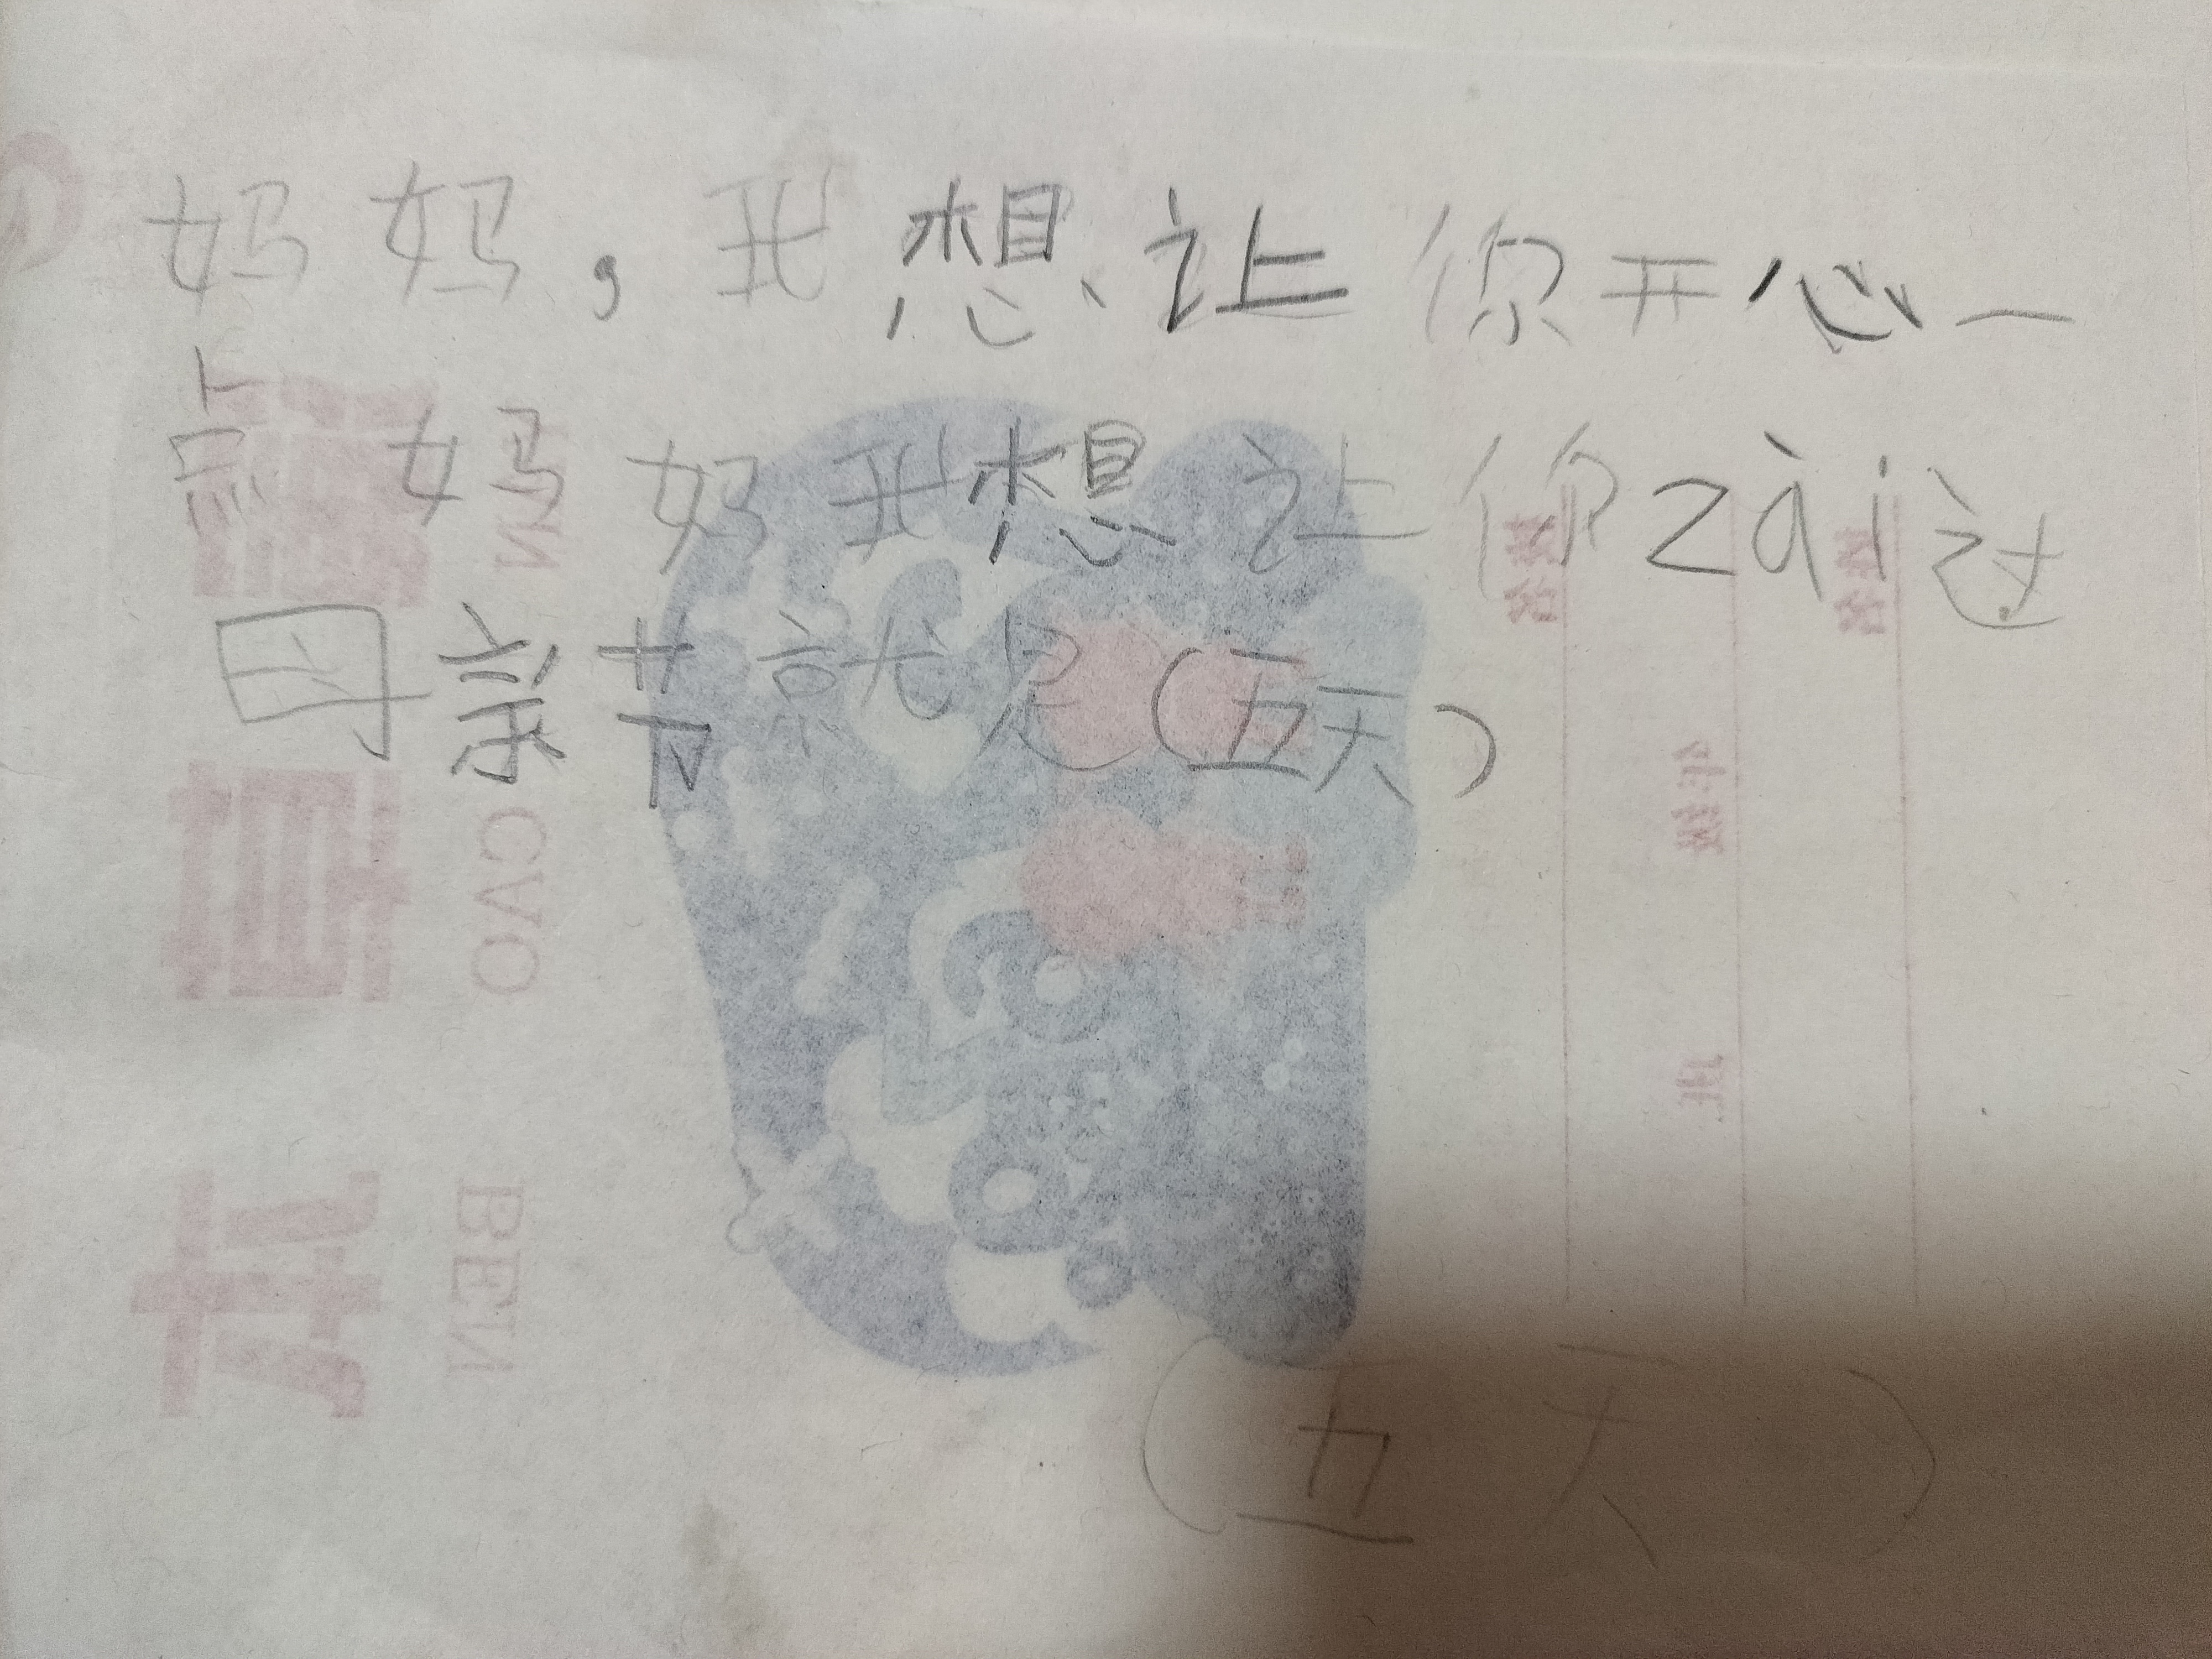 妈妈，我想让你开心一
点妈妈我想让你zài过
母亲节就是（五天）
（五天）
CVO
BEN
姓名
年级
班